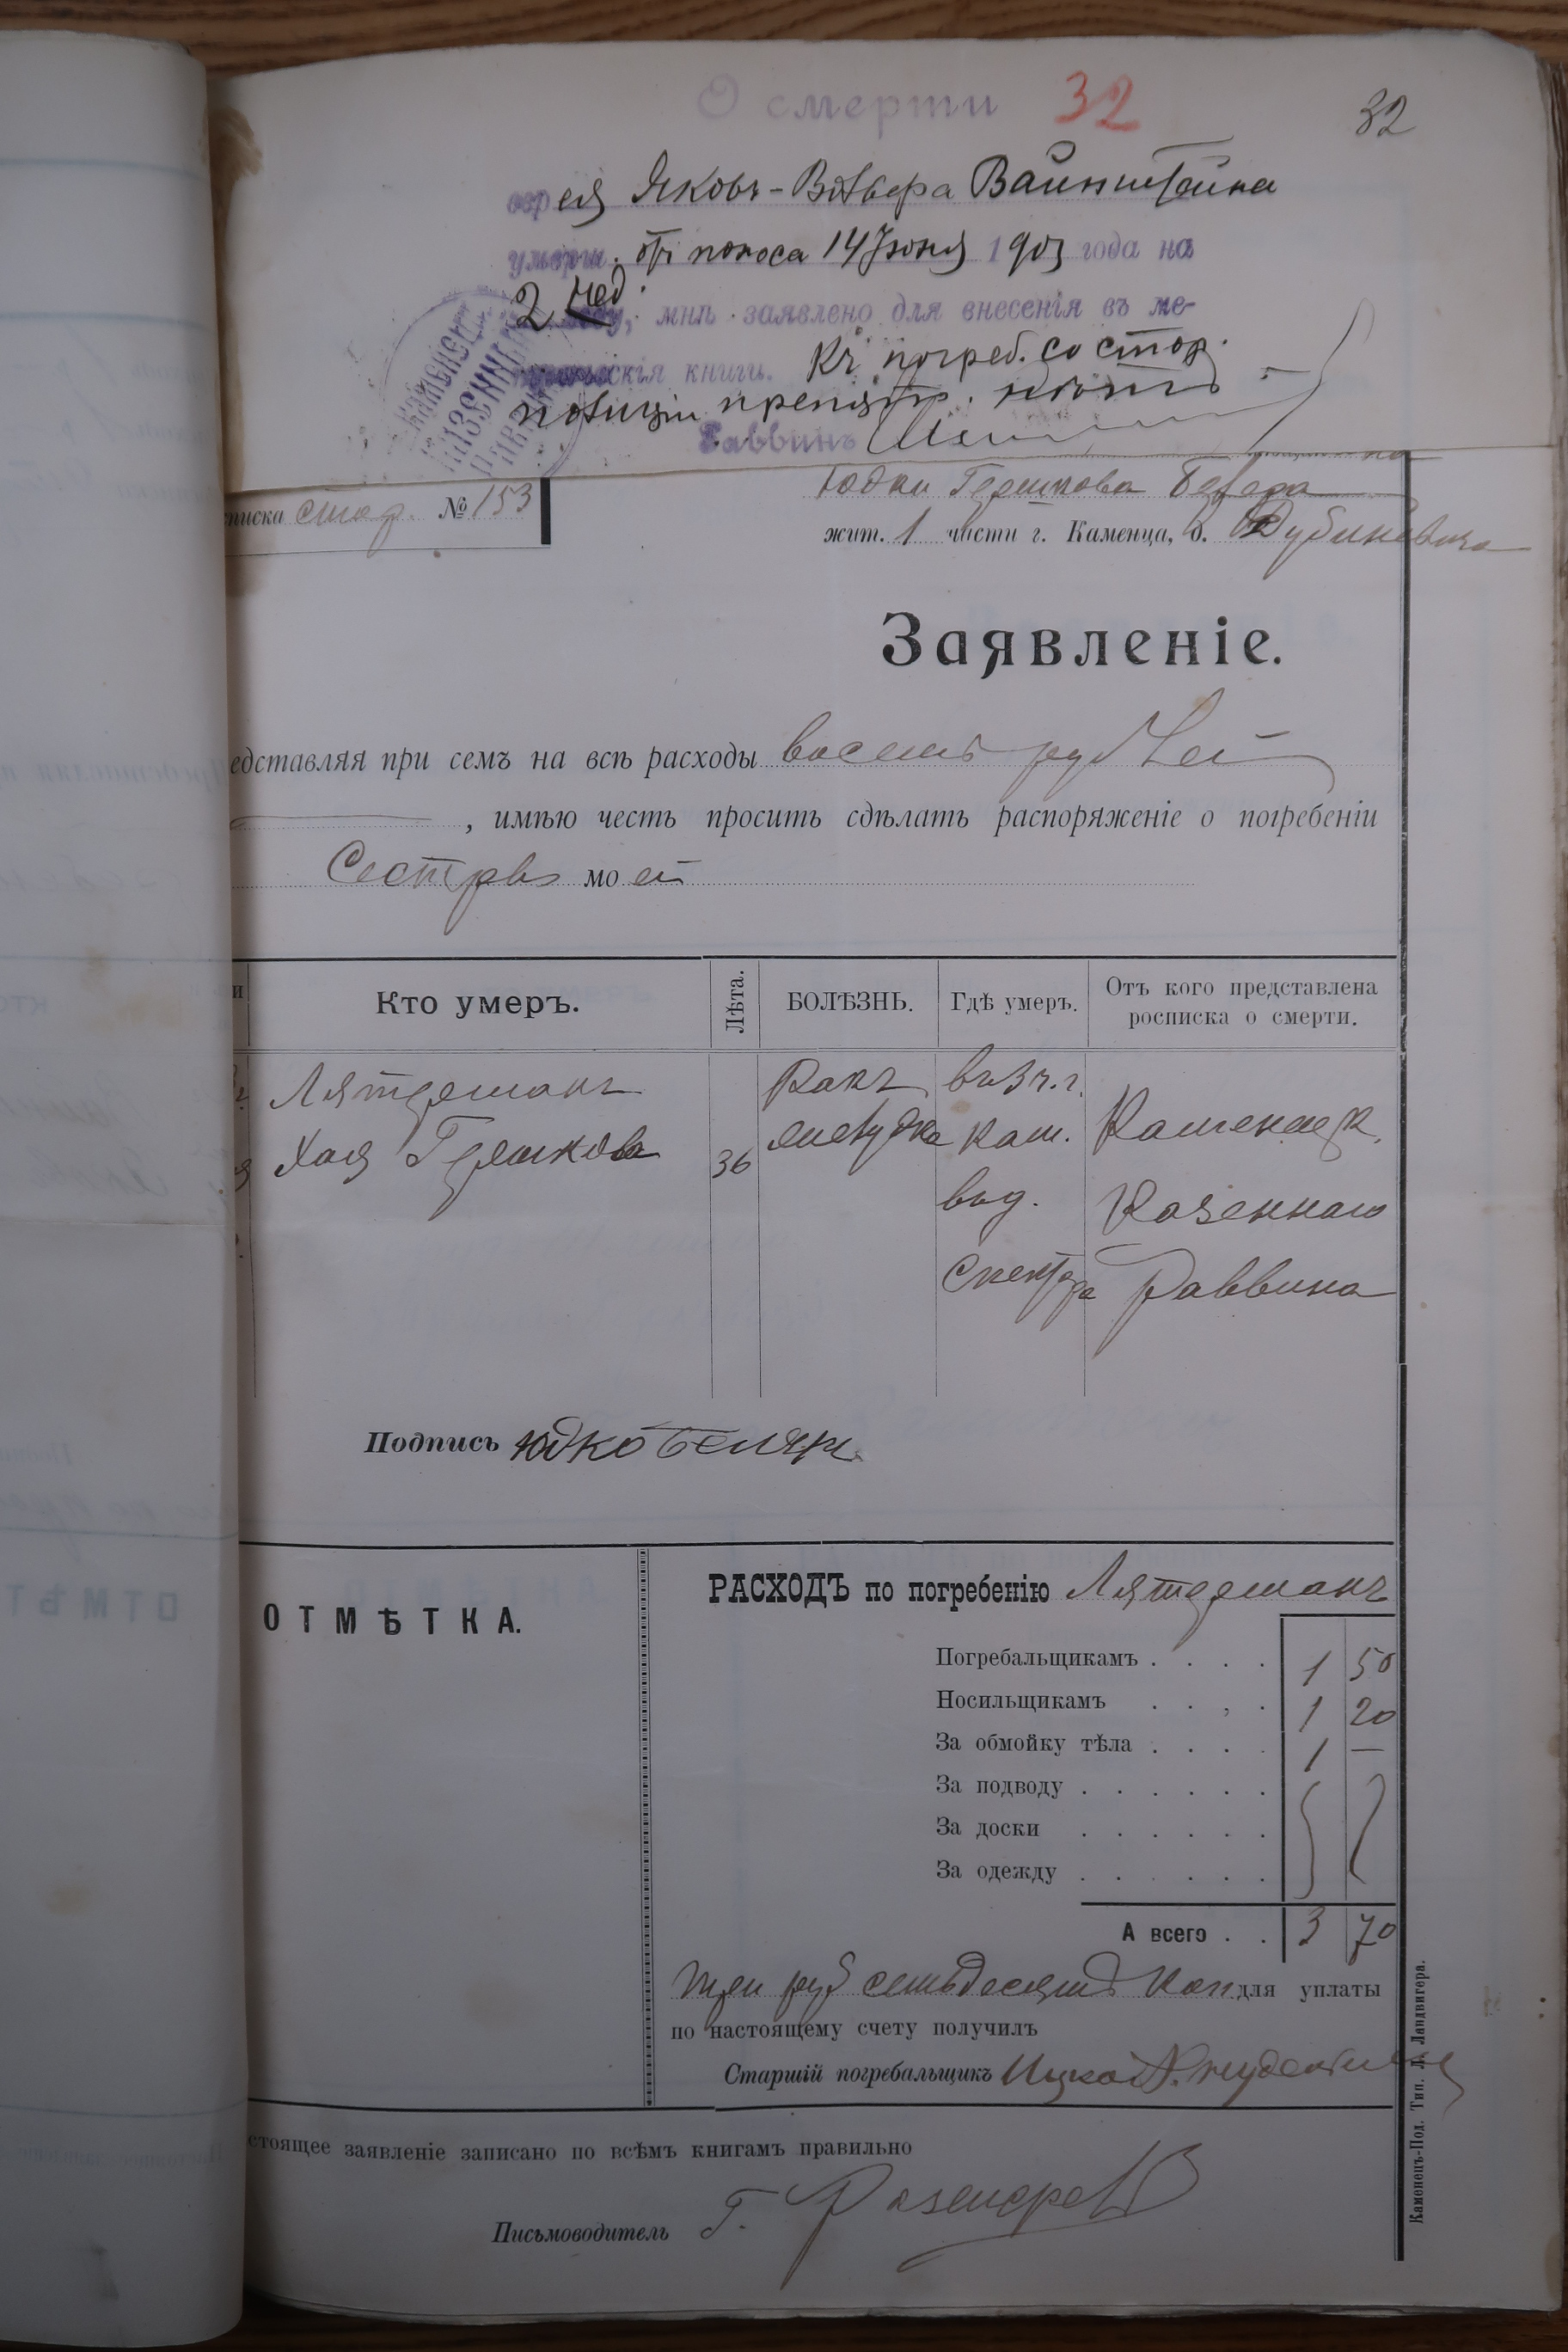 О смерти 32
32
еврея Яковъ-Вольфа Вайнштейна
умерш. отъ поноса 14 Іюня 1903 года на
2 нед. мнѣ заявлено для внесенія въ ме-
трическія книги. Къ погреб. со стор.
полиціи препятст. нѣтъ
Раввинъ
КАЗЕННЫЙ
списка стар. № 153
Юдки Гершкова
жит. 1 части г. Каменца, д.
Заявленіе.
едставляя при семъ на всѣ расходы восемь рублей
, имѣю честь просить сдѣлать распоряженіе о погребеніи
Сестры моей
Кто умеръ.
Лѣта.
БОЛѢЗНЬ.
Гдѣ умеръ.
Отъ кого представлена
росписка о смерти.
Лятерманъ
Хая Гершкова
36
Ракъ
желудка
въ 3 ч. г.
Кам.
въ д.
Спектора
Каменецк.
Казеннаго
Раввина
Подпись Юдко
ОТМѢТКА.
РАСХОДЪ по погребенію Лятерманъ
Погребальщикамъ . . . . 1 50
Носильщикамъ . . , . 1 20
За обмойку тѣла . . . . 1 —
За подводу . . . . . .
За доски . . . . . .
За одежду . . . . . .
А всего . . 3 70
три руб семьдесятъ коп для уплаты
по настоящему счету получилъ
Старшій погребальщикъ Ицко
стоящее заявленіе записано по всѣмъ книгамъ правильно
Письмоводитель Г.
Каменецъ-Под. Тип. Л. Ландвигера.